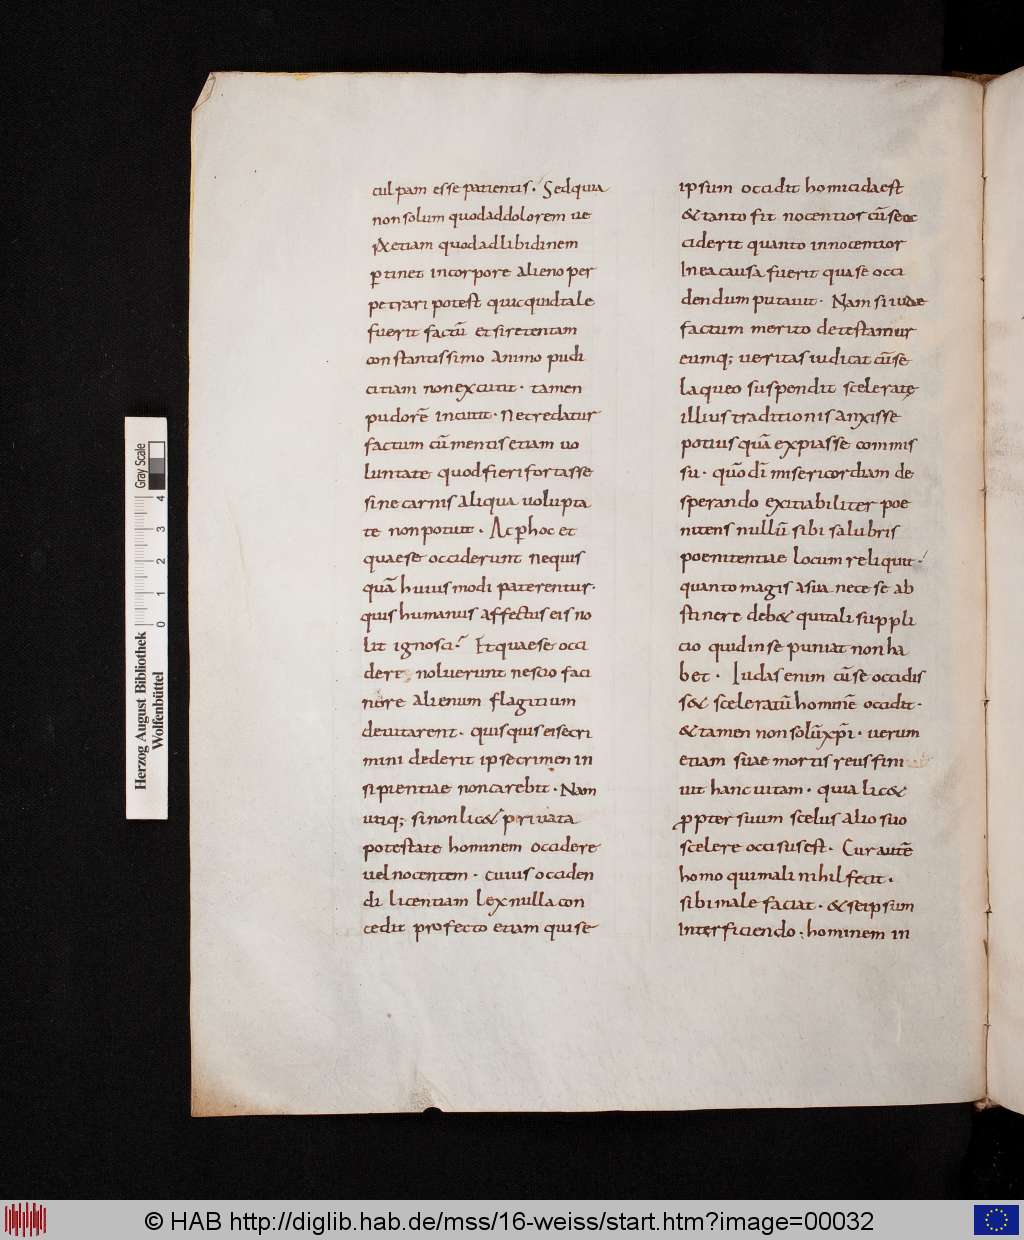 culpam esse patientis. Sed quia
non solum quod ad dolorem ue
rũ etiam quod ad libidinem
ꝑtinet in corpore alieno per
petrari potest quicquid tale
fuerit factū et si retentam
constantissimo animo pudi
citiam non excutit. tamen
pudorē incutit. Ne credatur
factum cū mentis etiam uo
luntate quod fieri fortasse
sine carnis aliqua uolupta
te non potuit. Ac ꝑ hoc et
quae se occiderunt ne quis
quā huiusmodi paterentur.
quis humanus affectus eis no
lit ignosci? Et quae se occi
dere noluerunt ne suo faci
nore alienum flagitium
deuitarent. quisquis eis cri
mini dederit ipse crimen in
sipientiae non carebit. Nam
utiq; si non lic& priuata
potestate hominem occidere
uel nocentem. cuius occiden
di licentiam lex nulla con
cedit profecto etiam qui se
ipsum occidit homicida est
& tanto fit nocentior cū se oc
ciderit quanto innocentior
In ea causa fuerit qua se occi
dendum putauit. Nam si iudae
factum merito detestamur
eumq; ueritas iudicat cū se
laqueo suspendit sceleratę
illius traditionis auxisse
potius quā expiasse commis
sū. quō dī misericordiam de
sperando exitiabiliter poe
nitens nullū sibi salubris
poenitentiae locum reliquit.
quanto magis a sua nece se ab
stinere deb& qui tali suppli
cio quid in se puniat non ha
bet. Iudas enim cū se occidis
s& sceleratū hominē occidit.
& tamen non solū xp̄i. uerum
etiam suae mortis reus fini
uit hanc uitam. quia lic&
ꝓpter suum scelus alio suo
scelere occisus est. Cur autē
homo qui mali nihil fecit.
sibi male faciat. & se ipsum
Interficiendo. hominem in
Herzog August Bibliothek
Wolfenbüttel
0 1 2 3 4
Gray Scale
© HAB http://diglib.hab.de/mss/16-weiss/start.htm?image=00032